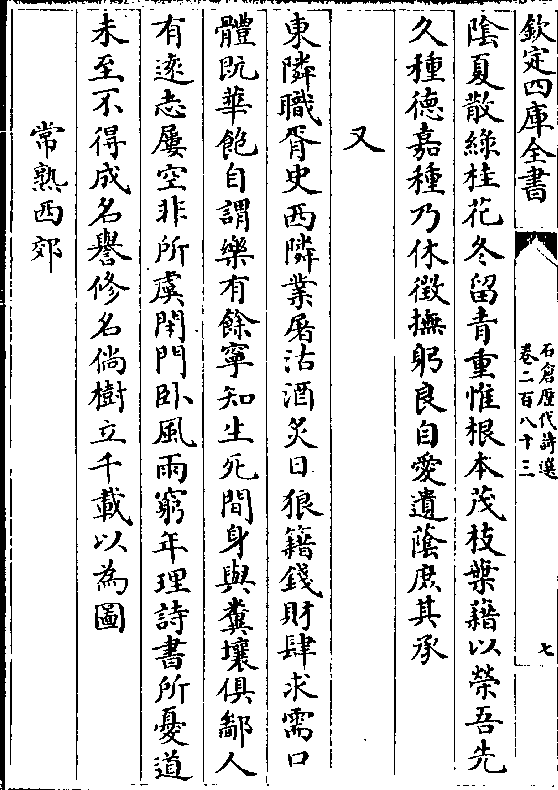 欽定四庫全書
石倉歴代詩選
卷二百八十三
七
陰夏散綠桂花冬留青重惟根本茂枝葉籍以榮吾先
久種德嘉種乃休徴撫躬良自愛遺蔭庶其承
又
東隣職胥史西隣業屠沽酒炙日狼籍錢財肆求需口
體既華飽自謂樂有餘寧知生死間身與糞壤俱鄙人
有逺志屢空非所虞閉門卧風雨窮年理詩書所憂道
未至不得成名譽修名倘樹立千載以為圖
常熟西郊